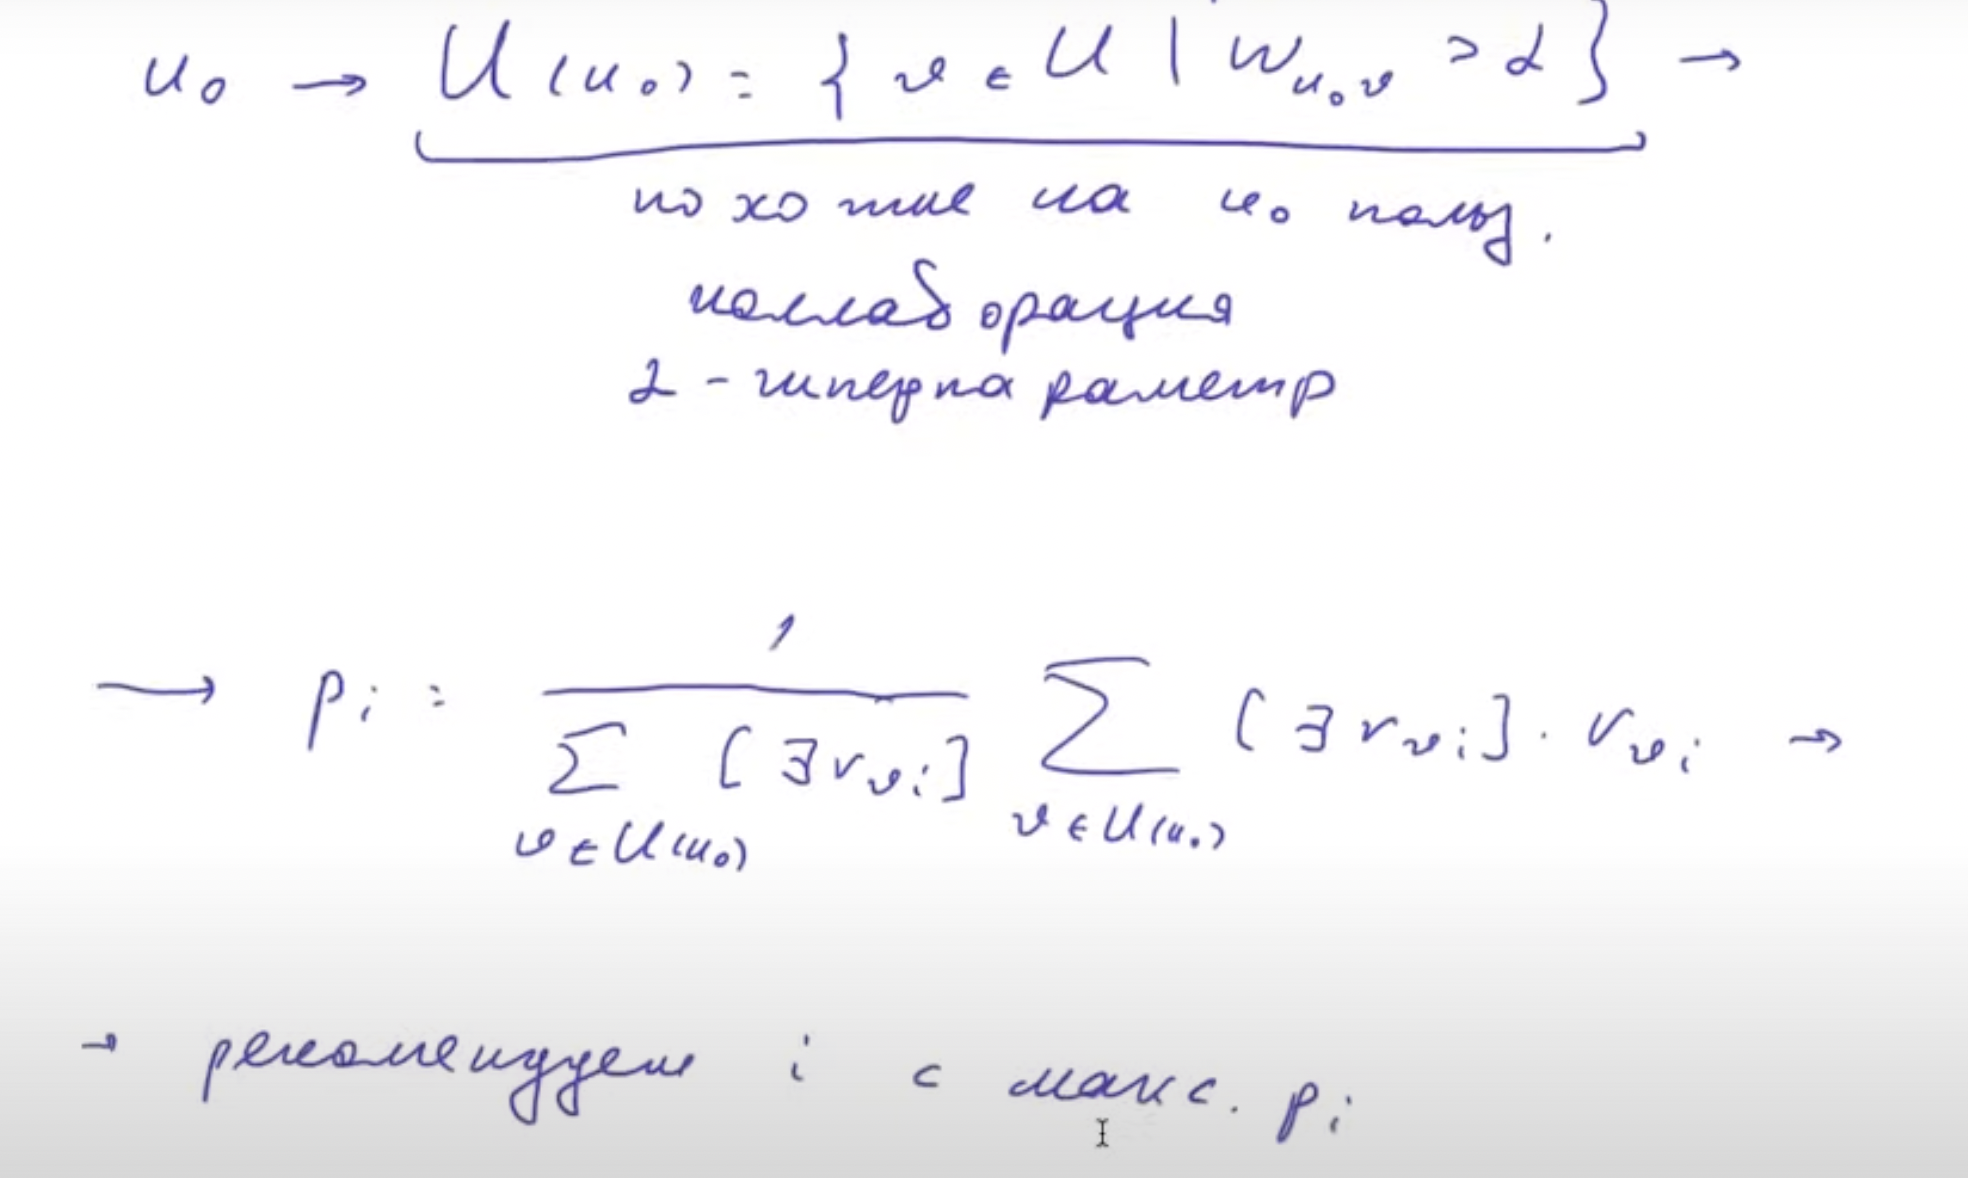 u₀ → U(u₀) = { v ∈ U | w_{u₀v} > α } →
похожие на u₀ польз.
коллаборация
α - гиперпараметр
→ p_i = 1 / (Σ_{v ∈ U(u₀)} [∃ r_{vi}]) Σ_{v ∈ U(u₀)} [∃ r_{vi}] · r_{vi} →
→ рекомендуем i с макс. p_i